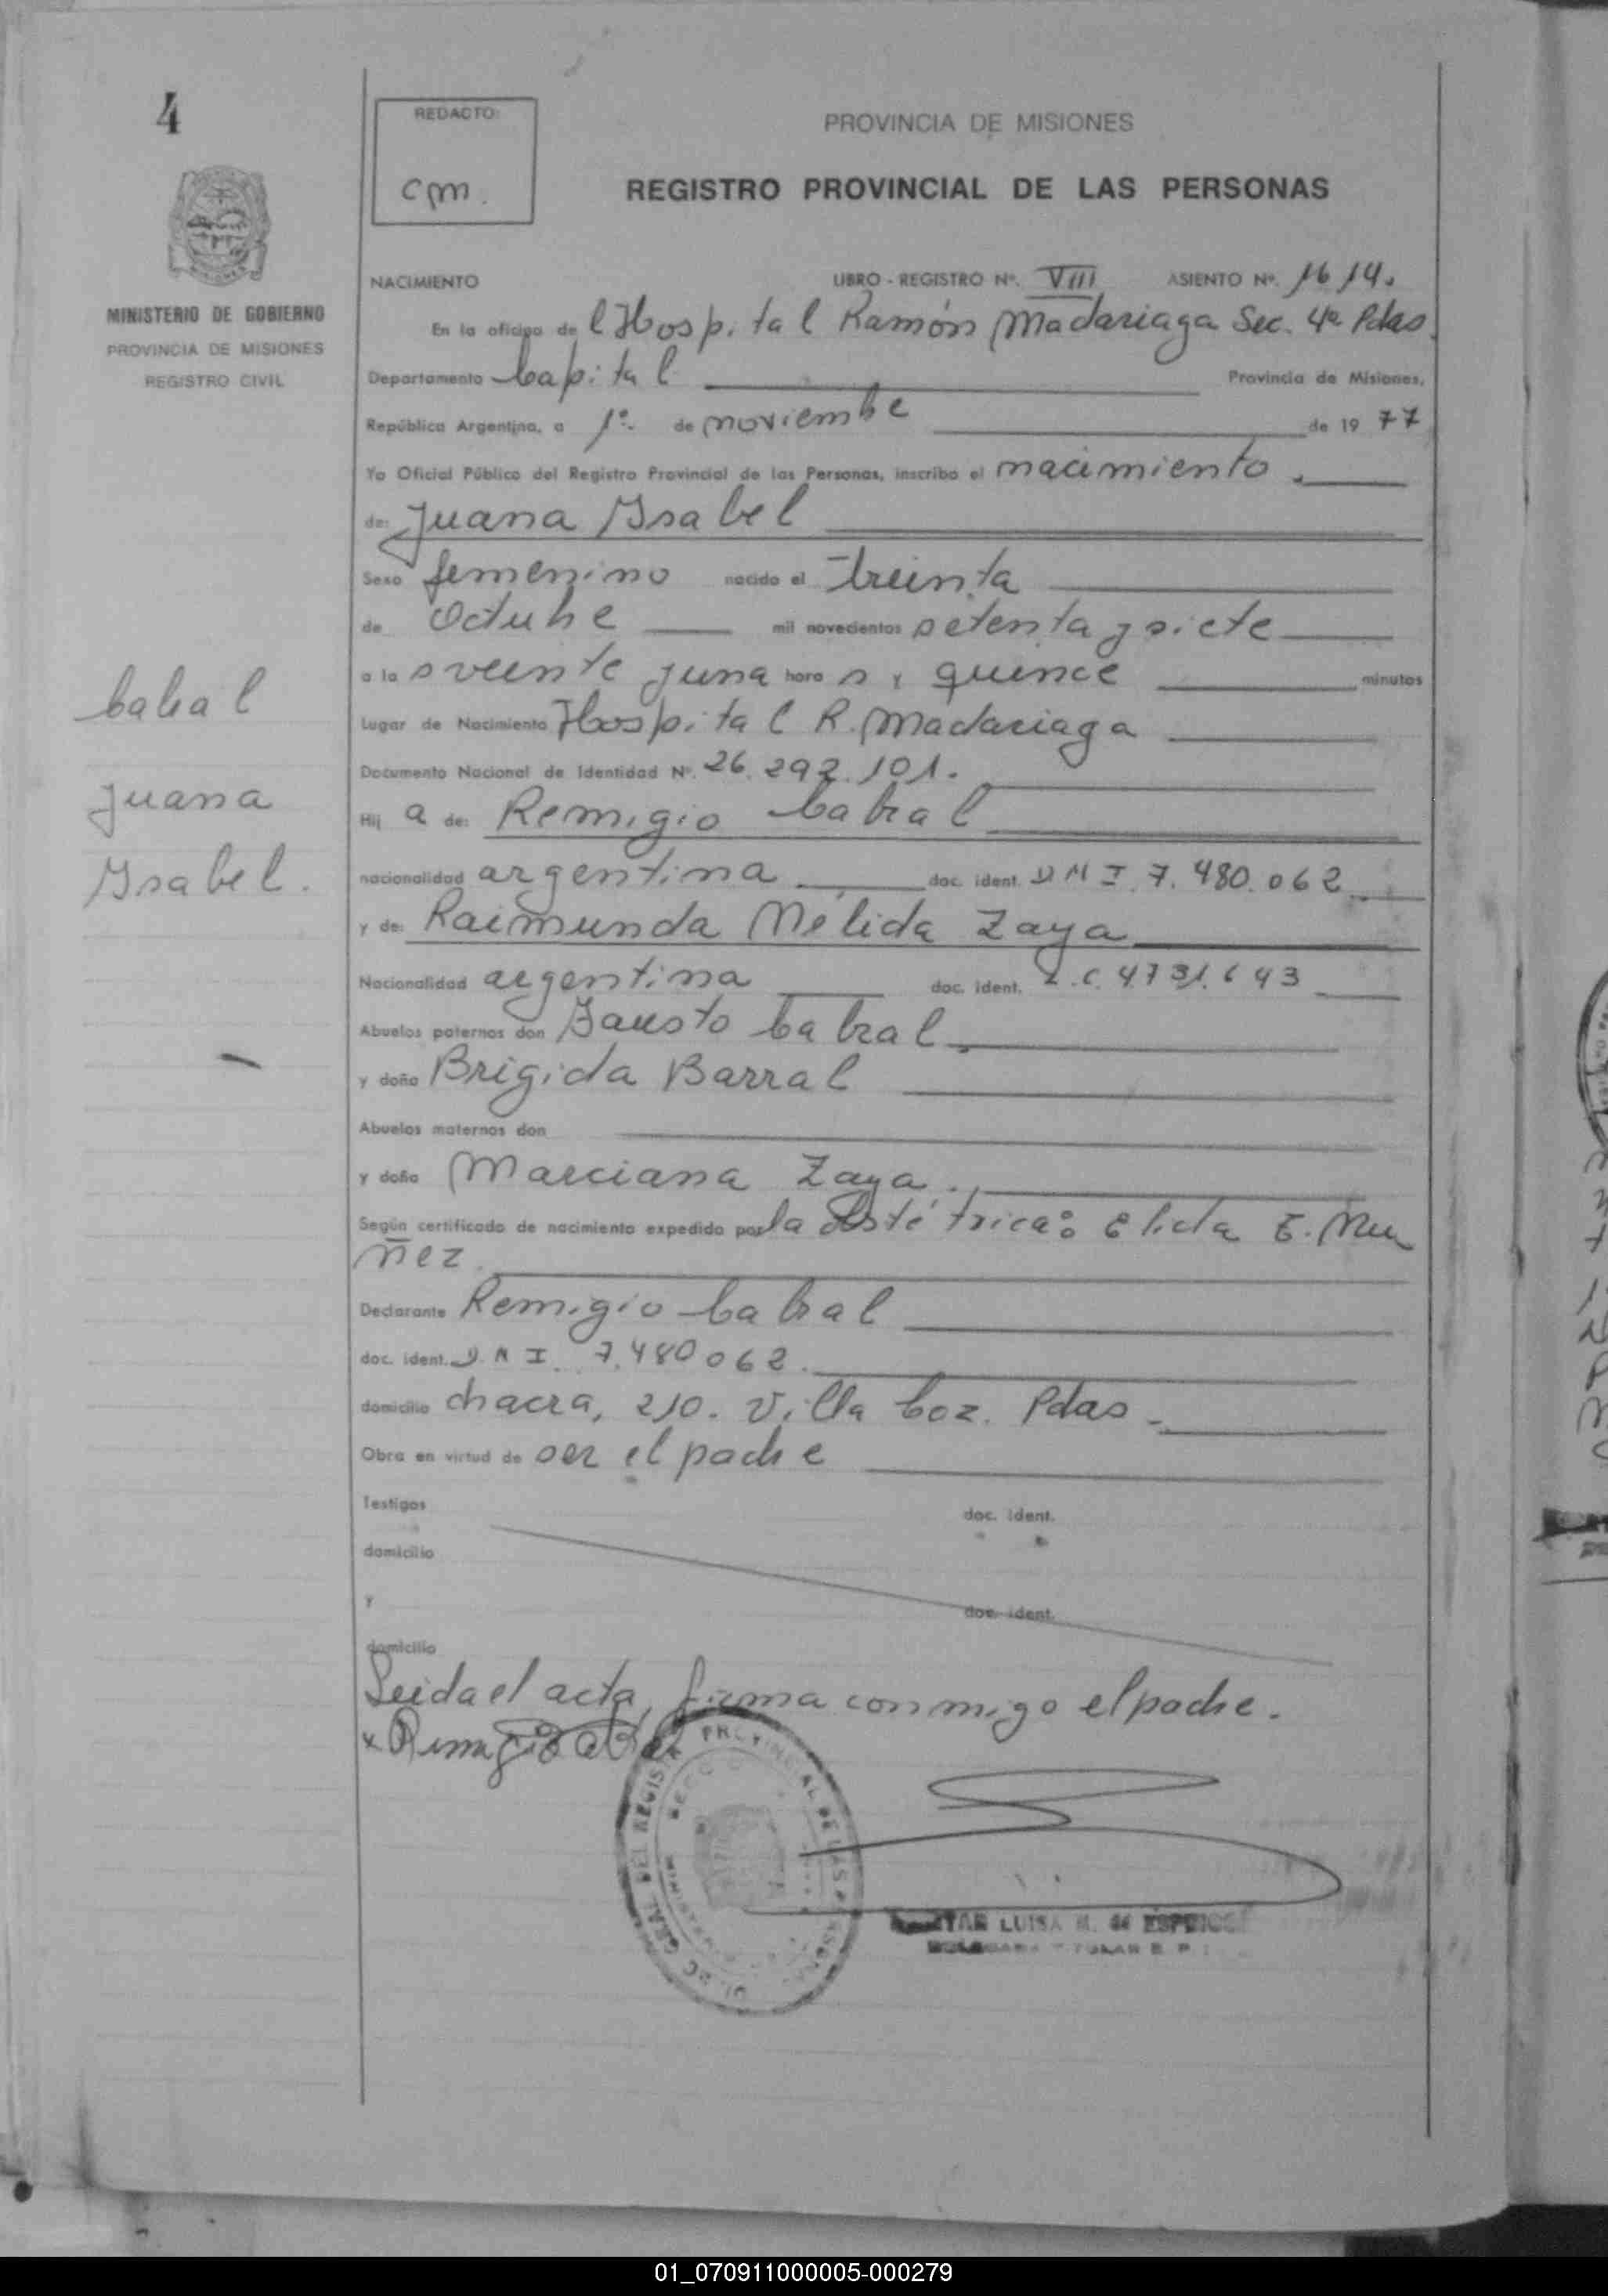 4
REDACTO:
cpm.
PROVINCIA DE MISIONES
REGISTRO PROVINCIAL DE LAS PERSONAS
MINISTERIO DE GOBIERNO
PROVINCIA DE MISIONES
REGISTRO CIVIL
NACIMIENTO LIBRO - REGISTRO Nº. VIII ASIENTO Nº. 1614.
En la oficina de l Hospital Ramón Madariaga Sec. 4a Pdas.
Departamento Capital Provincia de Misiones,
República Argentina, a 1º. de noviembre de 19 77
Yo Oficial Público del Registro Provincial de las Personas, inscribo el nacimiento.
de: Juana Ysabel
Sexo femenino nacido el treinta
de Octubre mil novecientos setenta y siete
a la s veinte y una hora s y quince minutos
Cabral
Juana
Ysabel.
Lugar de Nacimiento Hospital R. Madariaga
Documento Nacional de Identidad Nº. 26.292.101.
Hij a de: Remigio Cabral
nacionalidad argentina doc. ident. D N I 7.480.062
y de: Raimunda Nélida Zaya
Nacionalidad argentina doc. ident. L.C. 4731643
Abuelos paternos don Fausto Cabral
y doña Brigida Barral
Abuelos maternos don
y doña Marciana Zaya.
Según certificado de nacimiento expedido por la obstétrica: Elida E. Nu
ñez.
Declarante Remigio Cabral
doc. ident. D.N I. 7.480062.
domicilio chacra, 210. Villa Coz. Pdas.
Obra en virtud de ser el padre
Testigos doc. ident.
domicilio
y doc. ident.
domicilio
Leida el acta, firma conmigo el padre.
x Remigio
REGISTRO PROVINCIAL DE LAS PERSONAS
LUISA M. de
01_070911000005-000279